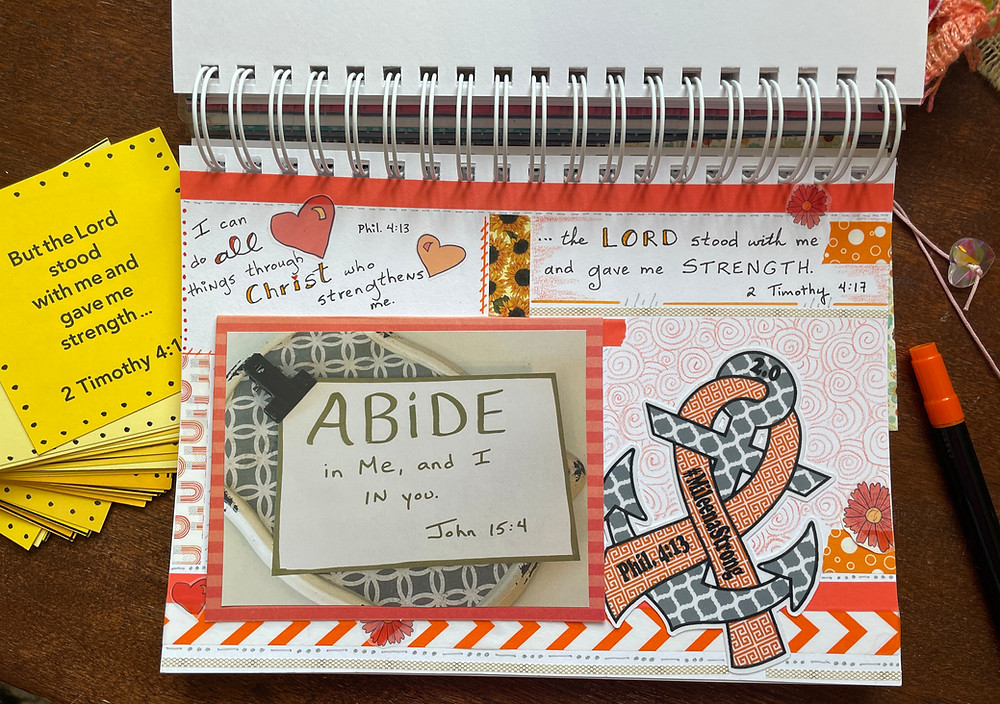 But the Lord
stood
with me and
gave me
strength ...
2 Timothy 4:1
I can
do all
things through
Christ who
strengthens
me.
Phil. 4:13
... the LORD stood with me
and gave me STRENGTH.
2 Timothy 4:17
ABiDE
in Me, and I
IN you.
John 15:4
2.0
#MileenaStrong
Phil. 4:13